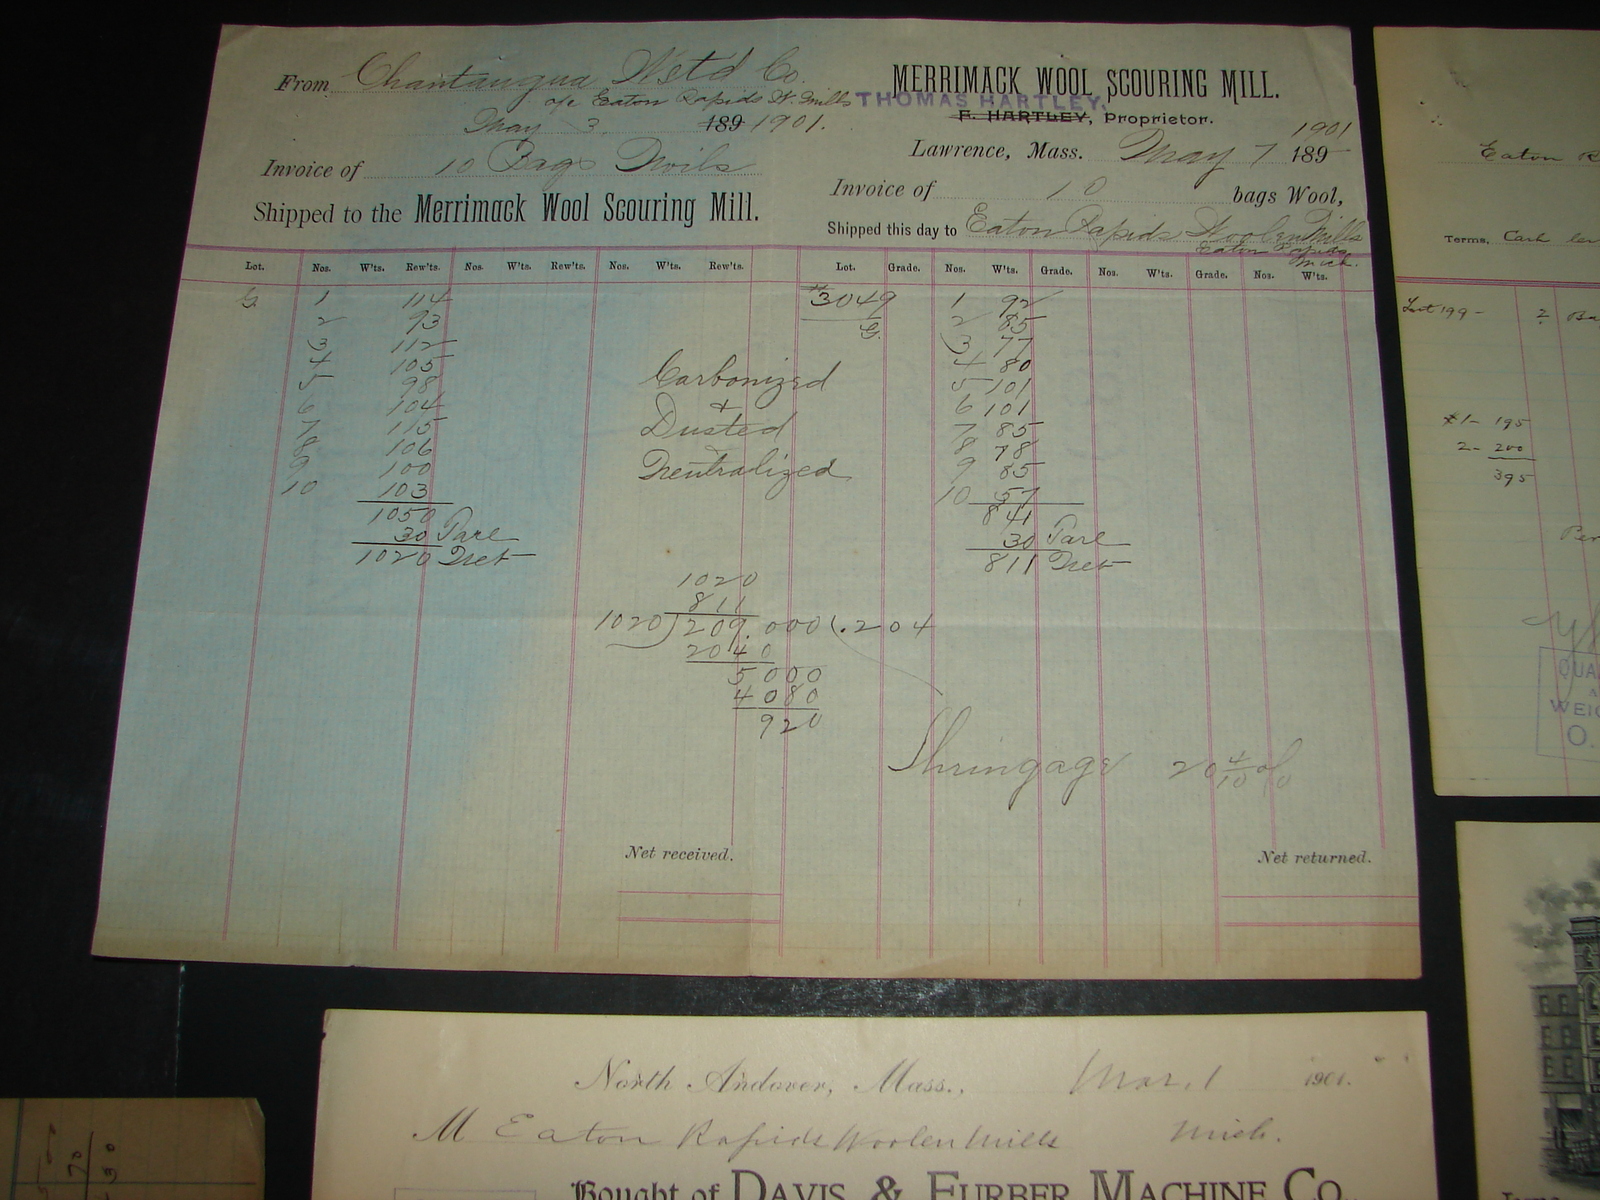 From Chautauqua Wstd Co.
a/c Eaton Rapids W. Mills
May 3 189 1901.
Invoice of 10 Bags Noils
Shipped to the Merrimack Wool Scouring Mill.
MERRIMACK WOOL SCOURING MILL.
THOMAS HARTLEY,
F. HARTLEY, Proprietor.
1901
Lawrence, Mass. May 7 189
Invoice of 10 bags Wool,
Shipped this day to Eaton Rapids Woolen Mills
Eaton Rapids
Mich.
Lot. Nos. W'ts. Rew'ts. Nos. W'ts. Rew'ts. Nos. W'ts. Rew'ts. Lot. Grade. Nos. W'ts. Grade. Nos. W'ts. Grade. Nos. W'ts.
G 1 114 #3049 1 92
2 93 G. 2 85
3 112 3 77
4 105 Carbonized 4 80
5 98 5 101
6 104 & 6 101
7 115 Dusted 7 85
8 106 8 78
9 100 Neutralized 9 85
10 103 10 57
1050 841
30 Tare 30 Tare
1020 Net 811 Net
1020
811
1020)209.000(.204
2040
5000
4080
920
Shringage 20 4/10 %
Net received. Net returned.
Eaton R
Terms, Cash
Lot 199- 2 Ba
#1- 195
2- 200
395
Per
QUA
A
WEIG
O.
North Andover, Mass., Mar. 1 1901.
M Eaton Rapids Woolen Mills Mich.
Bought of DAVIS & FURBER MACHINE CO.
70